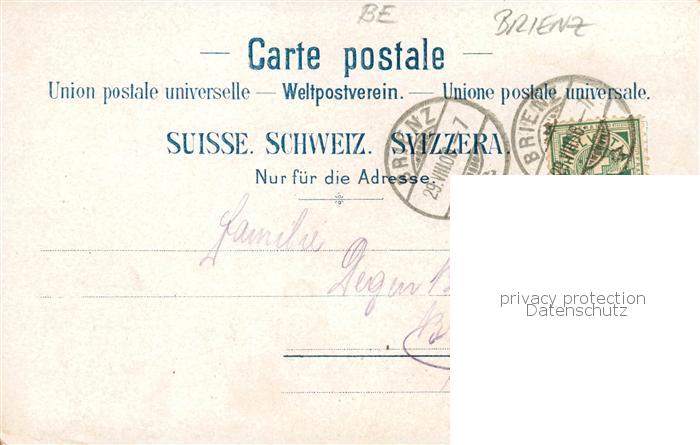 BE
BRIENZ
— Carte postale —
Union postale universelle — Weltpostverein. — Unione postale universale.
SUISSE. SCHWEIZ. SVIZZERA.
Nur für die Adresse.
BRIENZ
29.VIII.06.-7
BRIENZ
Familie
Degen
privacy protection
Datenschutz